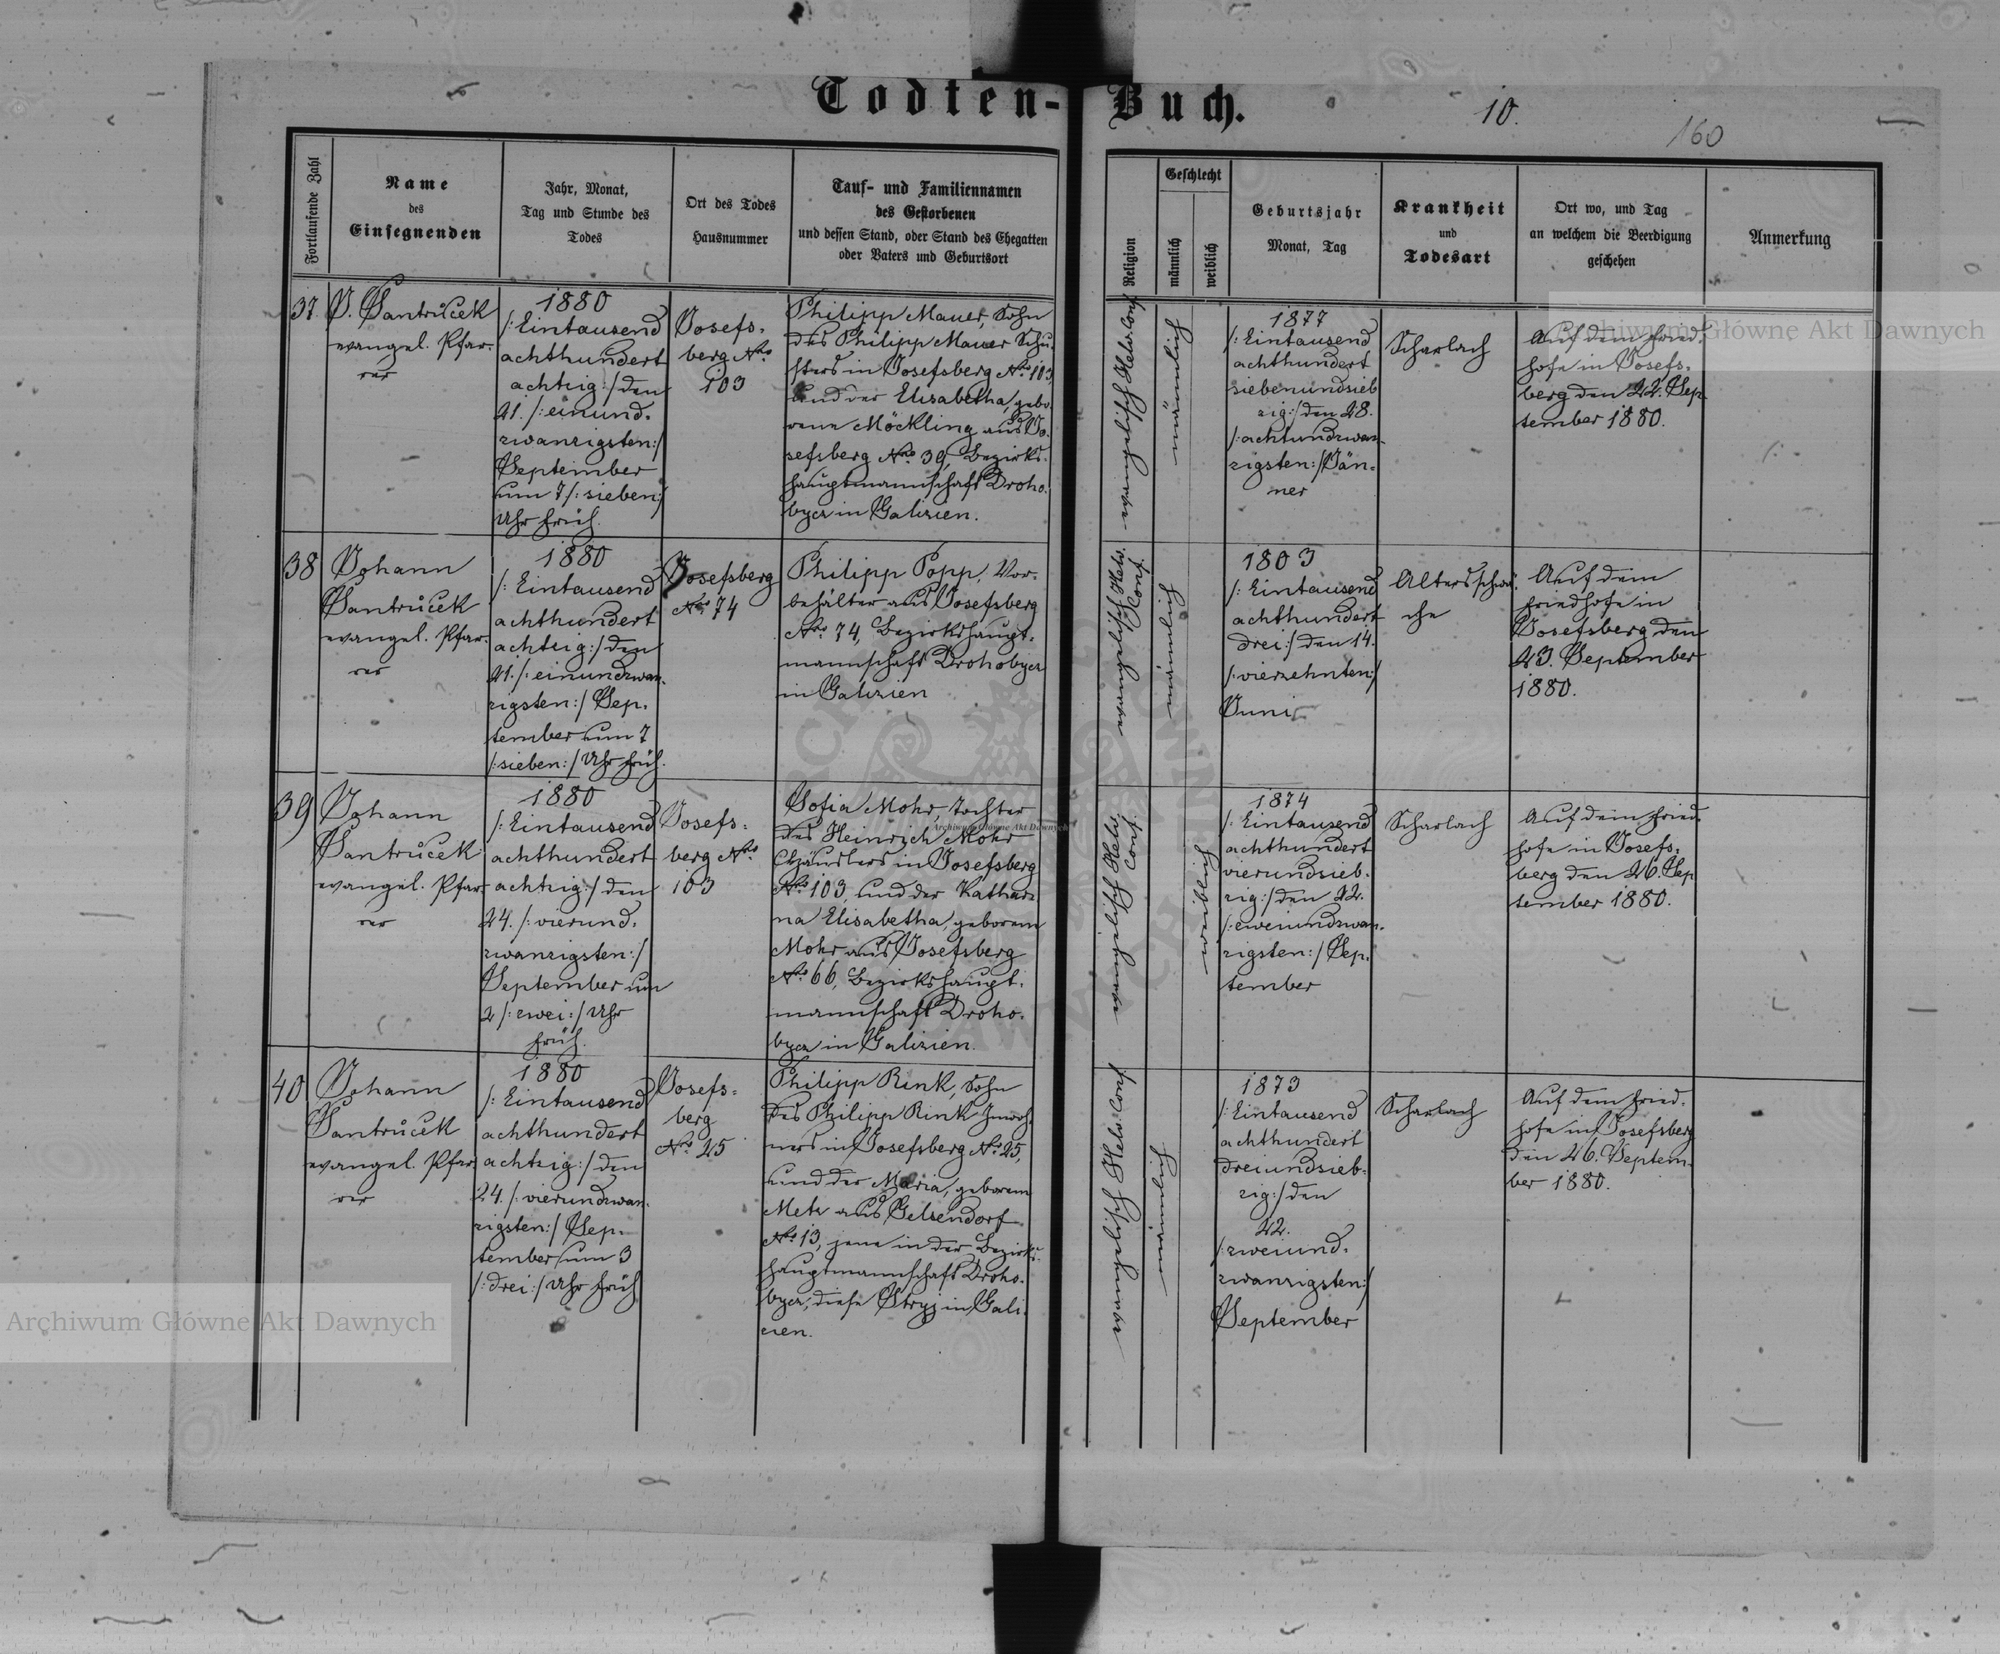 Todten-Buch.
10.
160
Fortlaufende Zahl
Name
des
Einsegnenden
Jahr, Monat,
Tag und Stunde des
Todes
Ort des Todes
Hausnummer
Tauf- und Familiennamen
des Gestorbenen
und dessen Stand, oder Stand des Ehegatten
oder Vaters und Geburtsort
Religion
Geschlecht
männlich
weiblich
Geburtsjahr
Monat, Tag
Krankheit
und
Todesart
Ort wo, und Tag
an welchem die Beerdigung
geschehen
Anmerkung
37
J. Santrůček
evangel. Pfar-
rer
1880
/: Eintausend
achthundert
achtzig :/ den
21. /: einund-
zwanzigsten :/
September
um 7 /: sieben :/
Uhr früh.
Josefs-
berg Nro
103
Philipp Mauer, Sohn
des Philipp Mauer Schu-
sters in Josefsberg No. 103
und der Elisabetha, gebo-
rene Möckling aus Jo-
sefsberg No. 39, Bezirks-
hauptmannschaft Droho-
bycz in Galizien.
evangelisch Helv. Conf.
männlich
1877
/: Eintausend
achthundert
siebenundsieb
zig :/ den 28.
/: achtundzwan-
zigsten :/ Jän-
ner
Scharlach
Auf dem Fried-
hofe in Josefs-
berg den 22. Sep-
tember 1880.
38
Johann
Santrůček
evangel. Pfar-
rer
1880
/: Eintausend
achthundert
achtzig :/ den
21. /: einundzwan-
zigsten :/ Sep-
tember um 7
/: sieben :/ Uhr früh.
Josefsberg
Nro 74
Philipp Popp, Vor-
behälter aus Josefsberg
Nro 74, Bezirkshaupt-
mannschaft Drohobycz
in Galizien
evangelisch Helv.
Conf.
männlich
1803
/: Eintausend
achthundert
drei :/ den 14.
/: vierzehnten :/
Juni
Altersschwä-
che
Auf dem
Friedhofe in
Josefsberg den
23. September
1880.
39
Johann
Santrůček
evangel. Pfar-
rer
1880
/: Eintausend
achthundert
achtzig :/ den
24. /: vierund-
zwanzigsten :/
September um
2 /: zwei :/ Uhr
früh.
Josefs-
berg Nro
103
Sofia Mohr, Tochter
des Heinrich Mohr
Häuslers in Josefsberg
No. 103, und der Kathari-
na Elisabetha, geborenen
Mohr aus Josefsberg
No. 66, Bezirkshaupt-
mannschaft Droho-
bycz in Galizien.
evangelisch Helv.
Conf.
weiblich
1874
/: Eintausend
achthundert
vierundsieb-
zig :/ den 22.
/: zweiundzwan-
zigsten :/ Sep-
tember
Scharlach
Auf dem Fried-
hofe in Josefs-
berg den 26. Sep
tember 1880.
40
Johann
Santrůček
evangel. Pfar
rer
1880
/: Eintausend
achthundert
achtzig :/ den
24. /: vierundzwan-
zigsten :/ Sep-
tember um 3
/: drei :/ Uhr früh
Josefs-
berg
No. 25
Philipp Rink, Sohn
des Philipp Rink Inwoh-
ners in Josefsberg No. 25,
und der Maria, geborenen
Metz aus Gelsendorf
No. 13, jene in der Bezirks-
hauptmannschaft Droho-
bycz, diese Stryj in Gali-
zien.
evangelisch Helv. Conf.
männlich
1873
/: Eintausend
achthundert
dreiundsieb-
zig :/ den
22.
/: zweiund-
zwanzigsten :/
September
Scharlach
Auf dem Fried-
hofe in Josefsberg
den 26. Septem-
ber 1880.
Archiwum Główne Akt Dawnych
Archiwum Główne Akt Dawnych
Archiwum Główne Akt Dawnych